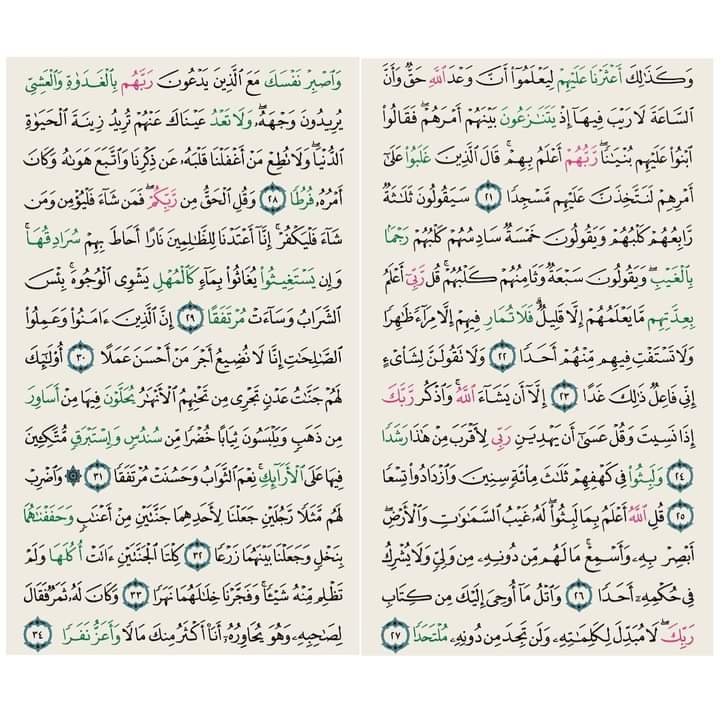 وَكَذَٰلِكَ أَعۡثَرۡنَا عَلَيۡهِمۡ لِيَعۡلَمُوٓاْ أَنَّ وَعۡدَ ٱللَّهِ حَقّٞ وَأَنَّ
ٱلسَّاعَةَ لَا رَيۡبَ فِيهَآ إِذۡ يَتَنَٰزَعُونَ بَيۡنَهُمۡ أَمۡرَهُمۡۖ فَقَالُواْ
ٱبۡنُواْ عَلَيۡهِم بُنۡيَٰنٗاۖ رَّبُّهُمۡ أَعۡلَمُ بِهِمۡۚ قَالَ ٱلَّذِينَ غَلَبُواْ عَلَىٰٓ
أَمۡرِهِمۡ لَنَتَّخِذَنَّ عَلَيۡهِم مَّسۡجِدٗا ٢١ سَيَقُولُونَ ثَلَٰثَةٞ
رَّابِعُهُمۡ كَلۡبُهُمۡ وَيَقُولُونَ خَمۡسَةٞ سَادِسُهُمۡ كَلۡبُهُمۡ رَجۡمَۢا
بِٱلۡغَيۡبِۖ وَيَقُولُونَ سَبۡعَةٞ وَثَامِنُهُمۡ كَلۡبُهُمۡۚ قُل رَّبِّيٓ أَعۡلَمُ
بِعِدَّتِهِم مَّا يَعۡلَمُهُمۡ إِلَّا قَلِيلٞۗ فَلَا تُمَارِ فِيهِمۡ إِلَّا مِرَآءٗ ظَٰهِرٗا
وَلَا تَسۡتَفۡتِ فِيهِم مِّنۡهُمۡ أَحَدٗا ٢٢ وَلَا تَقُولَنَّ لِشَاْيۡءٍ
إِنِّي فَاعِلٞ ذَٰلِكَ غَدًا ٢٣ إِلَّآ أَن يَشَآءَ ٱللَّهُۚ وَٱذۡكُر رَّبَّكَ
إِذَا نَسِيتَ وَقُلۡ عَسَىٰٓ أَن يَهۡدِيَنِ رَبِّي لِأَقۡرَبَ مِنۡ هَٰذَا رَشَدٗا
٢٤ وَلَبِثُواْ فِي كَهۡفِهِمۡ ثَلَٰثَ مِاْئَةٖ سِنِينَ وَٱزۡدَادُواْ تِسۡعٗا
٢٥ قُلِ ٱللَّهُ أَعۡلَمُ بِمَا لَبِثُواْۖ لَهُۥ غَيۡبُ ٱلسَّمَٰوَٰتِ وَٱلۡأَرۡضِۖ
أَبۡصِرۡ بِهِۦ وَأَسۡمِعۡۚ مَا لَهُم مِّن دُونِهِۦ مِن وَلِيّٖ وَلَا يُشۡرِكُ
فِي حُكۡمِهِۦٓ أَحَدٗا ٢٦ وَٱتۡلُ مَآ أُوحِيَ إِلَيۡكَ مِن كِتَابِ
رَبِّكَۖ لَا مُبَدِّلَ لِكَلِمَٰتِهِۦ وَلَن تَجِدَ مِن دُونِهِۦ مُلۡتَحَدٗا ٢٧
وَٱصۡبِرۡ نَفۡسَكَ مَعَ ٱلَّذِينَ يَدۡعُونَ رَبَّهُم بِٱلۡغَدَوٰةِ وَٱلۡعَشِيِّ
يُرِيدُونَ وَجۡهَهُۥۖ وَلَا تَعۡدُ عَيۡنَاكَ عَنۡهُمۡ تُرِيدُ زِينَةَ ٱلۡحَيَوٰةِ
ٱلدُّنۡيَاۖ وَلَا تُطِعۡ مَنۡ أَغۡفَلۡنَا قَلۡبَهُۥ عَن ذِكۡرِنَا وَٱتَّبَعَ هَوَىٰهُ وَكَانَ
أَمۡرُهُۥ فُرُطٗا ٢٨ وَقُلِ ٱلۡحَقُّ مِن رَّبِّكُمۡۖ فَمَن شَآءَ فَلۡيُؤۡمِن وَمَن
شَآءَ فَلۡيَكۡفُرۡۚ إِنَّآ أَعۡتَدۡنَا لِلظَّٰلِمِينَ نَارًا أَحَاطَ بِهِمۡ سُرَادِقُهَاۚ
وَإِن يَسۡتَغِيثُواْ يُغَاثُواْ بِمَآءٖ كَٱلۡمُهۡلِ يَشۡوِي ٱلۡوُجُوهَۚ بِئۡسَ
ٱلشَّرَابُ وَسَآءَتۡ مُرۡتَفَقًا ٢٩ إِنَّ ٱلَّذِينَ ءَامَنُواْ وَعَمِلُواْ
ٱلصَّٰلِحَٰتِ إِنَّا لَا نُضِيعُ أَجۡرَ مَنۡ أَحۡسَنَ عَمَلًا ٣٠ أُوْلَٰٓئِكَ
لَهُمۡ جَنَّٰتُ عَدۡنٖ تَجۡرِي مِن تَحۡتِهِمُ ٱلۡأَنۡهَٰرُ يُحَلَّوۡنَ فِيهَا مِنۡ أَسَاوِرَ
مِن ذَهَبٖ وَيَلۡبَسُونَ ثِيَابًا خُضۡرٗا مِّن سُندُسٖ وَإِسۡتَبۡرَقٖ مُّتَّكِـِٔينَ
فِيهَا عَلَى ٱلۡأَرَآئِكِۚ نِعۡمَ ٱلثَّوَابُ وَحَسُنَتۡ مُرۡتَفَقٗا ٣١ ۞ وَٱضۡرِبۡ
لَهُم مَّثَلٗا رَّجُلَيۡنِ جَعَلۡنَا لِأَحَدِهِمَا جَنَّتَيۡنِ مِنۡ أَعۡنَٰبٖ وَحَفَفۡنَٰهُمَا
بِنَخۡلٖ وَجَعَلۡنَا بَيۡنَهُمَا زَرۡعٗا ٣٢ كِلۡتَا ٱلۡجَنَّتَيۡنِ ءَاتَتۡ أُكُلَهَا وَلَمۡ
تَظۡلِم مِّنۡهُ شَيۡـٔٗاۚ وَفَجَّرۡنَا خِلَٰلَهُمَا نَهَرٗا ٣٣ وَكَانَ لَهُۥ ثَمَرٞ فَقَالَ
لِصَٰحِبِهِۦ وَهُوَ يُحَاوِرُهُۥٓ أَنَا۠ أَكۡثَرُ مِنكَ مَالٗا وَأَعَزُّ نَفَرٗا ٣٤